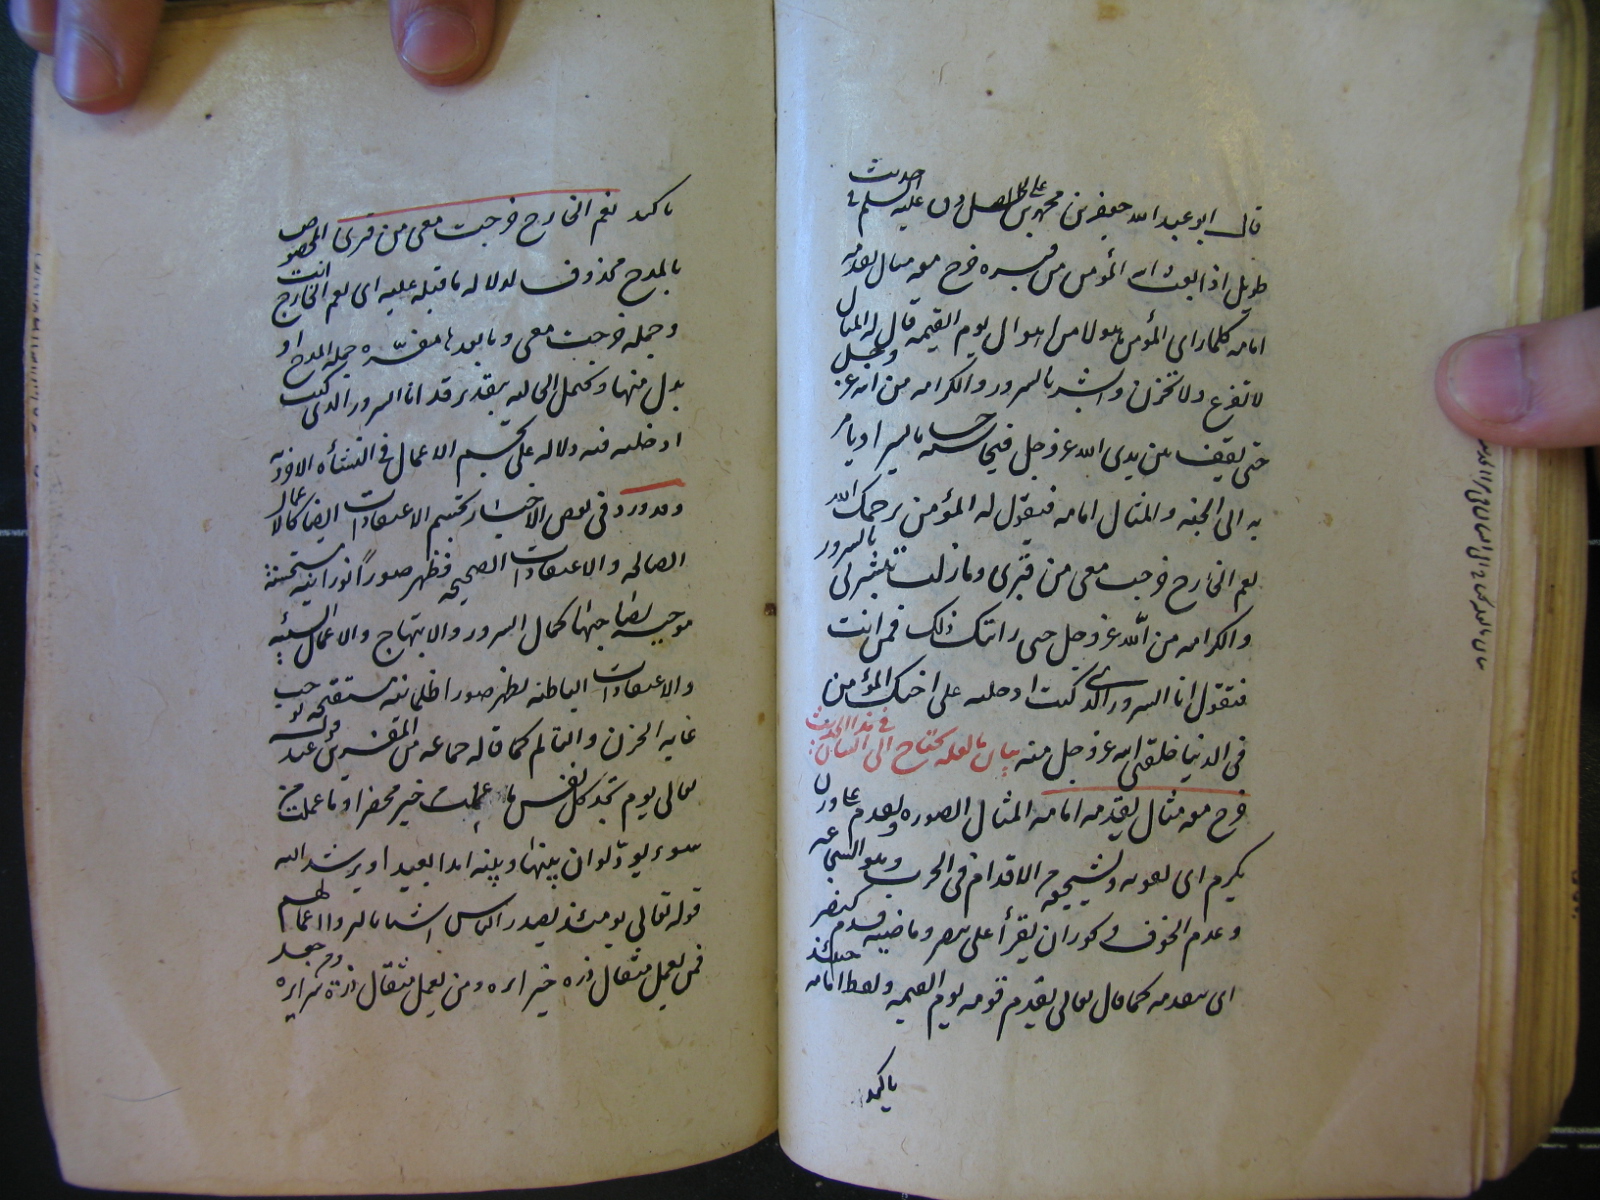 قال ابو عبد الله جعفر بن محمد بن علي الصادق عليه السلم في حديث
طويل اذا بعث الله المؤمن من قبره خرج معه مثال يقدمه
امامه كلما راى المؤمن هولا من اهوال يوم القيمه قال له المثال
لا تفزع ولا تحزن وابشر بالسرور والكرامه من الله عز وجل
حتى يقف بين يدى الله عز وجل فيحاسبه حسابا يسيرا ويامر
به الى الجنه والمثال امامه فيقول له المؤمن يرحمك الله
نعم الخارج خرجت معى من قبرى وما زلت تبشرنى بالسرور
والكرامه من الله عز وجل حتى رايتك ذلك فمن انت
فيقول انا السرور الذى كنت ادخلته على اخيك المؤمن
فى الدنيا خلقنى الله عز وجل منه بيان ما لعله يحتاج الى البيان فى هذا الحديث
خرج معه مثال يقدمه امامه المثال الصوره ويقدم على وزن
يكرم اى يقويه ويشجعه من الاقدام فى الحرب وهو الشجاعه
وعدم الخوف ويجوز ان يقرأ على ينصر وماضيه قدم كنصر
اى يتقدمه كما قال تعالى يقدم قومه يوم القيمه ولفظ امامه حينئذ
تاكيد
تاكيد نعم الخارج خرجت معى من قبرى المخصوص
بالمدح محذوف لدلاله ما قبله عليه اى نعم الخارج انت
وجمله خرجت معى وما بعدها مفسّره لجمله المدح او
بدل منها ويحتمل الحاليه بتقدير قد انا السرور الذى كنت
ادخلته فيه دلاله على تجسم الاعمال فى النشأه الاخرويه
وقد ورد فى بعض الاخبار تجسم الاعتقادات ايضا كالاعمال
الصالحه والاعتقادات الصحيحه فتظهر صوراً نورانيه مستحسنه
موجبه لصاحبها كمال السرور والابتهاج والاعمال السيئه
والاعتقادات الباطله تظهر صورا ظلمانيه مستقبحه توجب
غايه الحزن والتالم كما قاله جماعه من المفسرين عند قوله
تعالى يوم تجد كل نفس ما عملت من خير محضرا وما عملت من
سوء تود لو ان بينها وبينه امدا بعيدا ويرشد اليه
قوله تعالى يومئذ يصدر الناس اشتاتا ليروا اعمالهم
فمن يعمل مثقال ذره خيرا يره ومن يعمل مثقال ذرة شرا يره